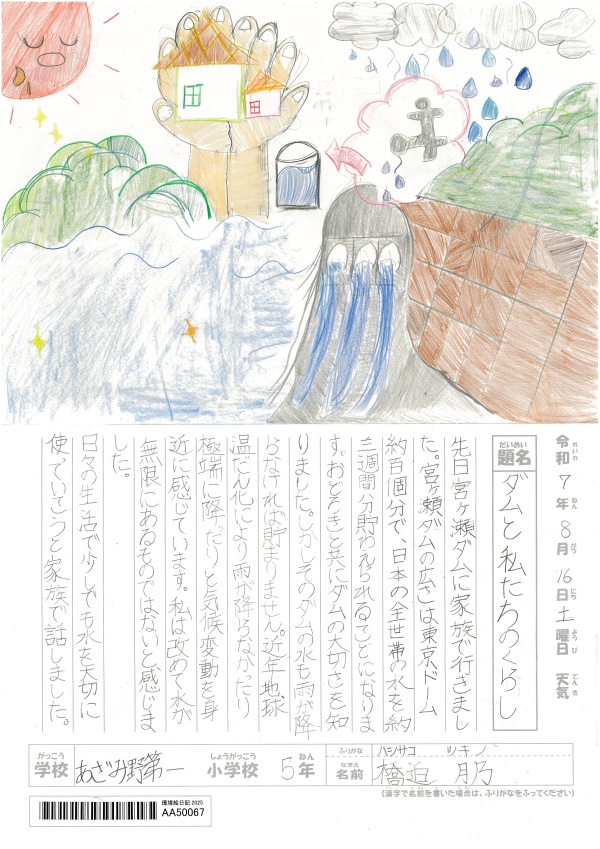 令和 れいわ 7年 ねん 8月 がつ 16日 にち 土曜日 ようび 天気 てんき
題名 だいめい ダムと私たちのくらし
先日宮ヶ瀬ダムに家族で行きまし
た。宮ヶ瀬ダムの広さは東京ドーム
約百個分で、日本の全世帯の水を約
三週間分貯められることになりま
す。おどろきと共にダムの大切さを知
りました。しかしそのダムの水も雨が降
らなければ貯まりません。近年地球
温だん化により雨が降らなかったり
極端に降ったりと気候変動を身
近に感じています。私は改めて水が
無限にあるものではないと感じま
した。
日々の生活で少しでも水を大切に
使っていこうと家族で話しました。
学校 がっこう あざみ野第一 小学校 しょうがっこう 5年 ねん
ふりがな ハシサコ ツキノ
名前 なまえ 橋迫 月乃
(漢字で名前を書いた場合は、ふりがなをふってください)
環境絵日記 2025
AA50067